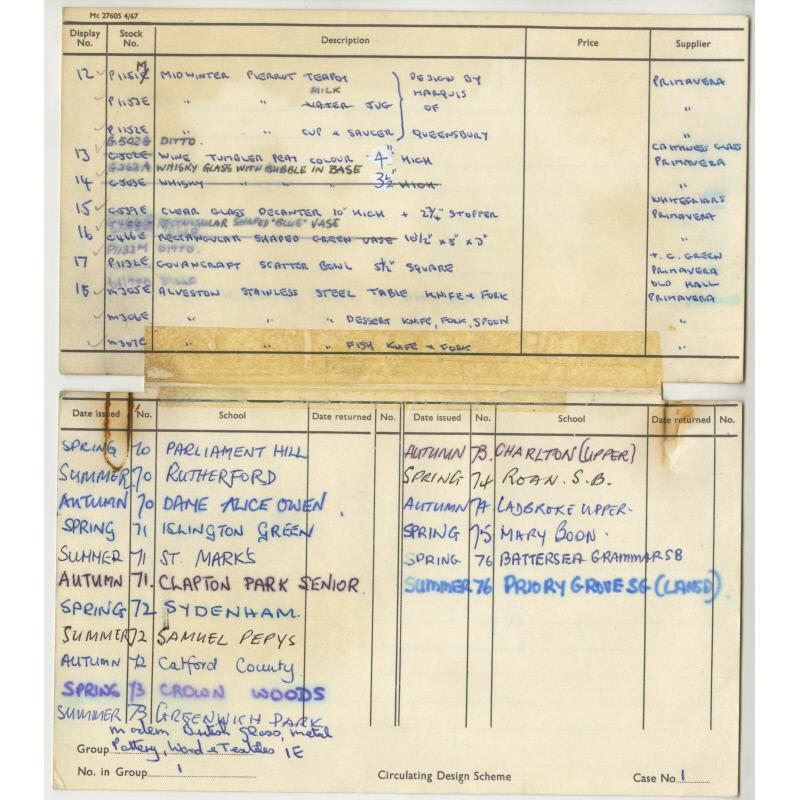 Mc 27605 4/67
Display No. Stock No. Description Price Supplier
12 P1151M MIDWINTER PIERROT TEAPOT DESIGN BY PRIMAVERA
MILK MARQUIS
P1153E " " WATER JUG OF "
P1152E " " CUP & SAUCER QUEENSBURY "
G502G DITTO. CAITHNESS GLASS
13 G502E WINE TUMBLER PEAT COLOUR 4" HIGH PRIMAVERA
G562A WHISKY GLASS WITH BUBBLE IN BASE
14 G503E WHISKY " " " 3½" HIGH "
WHITEFRIARS
15 G539E CLEAR GLASS DECANTER 10" HIGH + 2¾" STOPPER PRIMAVERA
RECTANGULAR SHAPED "BLUE" VASE
16 G466E RECTANGULAR SHAPED GREEN VASE 10½" x 5" x 3" "
P1132M DITTO. T. G. GREEN
17 P1132E GOVANCRAFT SCATTER BOWL 5½" SQUARE PRIMAVERA
OLD HALL
18 M305E ALVESTON STAINLESS STEEL TABLE KNIFE & FORK PRIMAVERA
M306E " " " DESSERT KNIFE, FORK, SPOON "
M307E " FISH KNIFE & FORK "
Date issued No. School Date returned No. Date issued No. School Date returned No.
SPRING 70 PARLIAMENT HILL
SUMMER 70 RUTHERFORD
AUTUMN 70 DAME ALICE OWEN.
SPRING 71 ISLINGTON GREEN
SUMMER 71 ST. MARK'S
AUTUMN 71. CLAPTON PARK SENIOR.
SPRING 72 SYDENHAM.
SUMMER 72 SAMUEL PEPYS
AUTUMN 72 Catford County
SPRING 73 CROWN WOODS
SUMMER 73 GREENWICH PARK
AUTUMN 73. CHARLTON (UPPER)
SPRING 74 ROAN. S.B.
AUTUMN 74 LADBROKE UPPER.
SPRING 75 MARY BOON.
SPRING 76 BATTERSEA GRAMMAR SB
SUMMER 76 PRIORY GROVE SG (LANSD).
modern British glass, metal
Group Pottery, Wood & Textiles 1E
No. in Group 1 Circulating Design Scheme Case No. 1